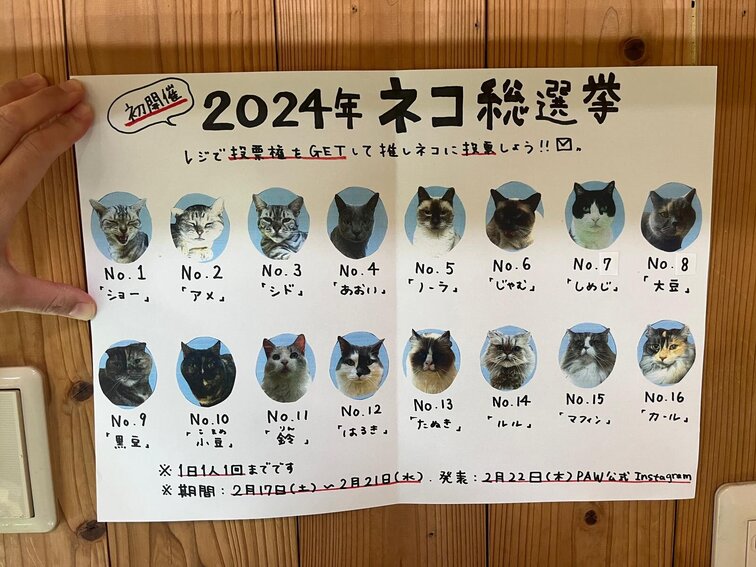 初開催
2024年 ネコ総選挙
レジで投票権をGETして推しネコに投票しよう!!
No.1 No.2 No.3 No.4 No.5 No.6 No.7 No.8
「ショー」 「アメ」 「シド」 「あおい」 「ノーラ」 「じゃむ」 「しめじ」 「大豆」
No.9 No.10 No.11 No.12 No.13 No.14 No.15 No.16
こまめ りん
「黒豆」 「小豆」 「鈴」 「はるき」 「たぬき」 「ルル」 「マフィン」 「カール」
※1日1人1回までです
※期間:2月17日(土)~2月21日(水). 発表:2月22日(木)PAW公式Instagram